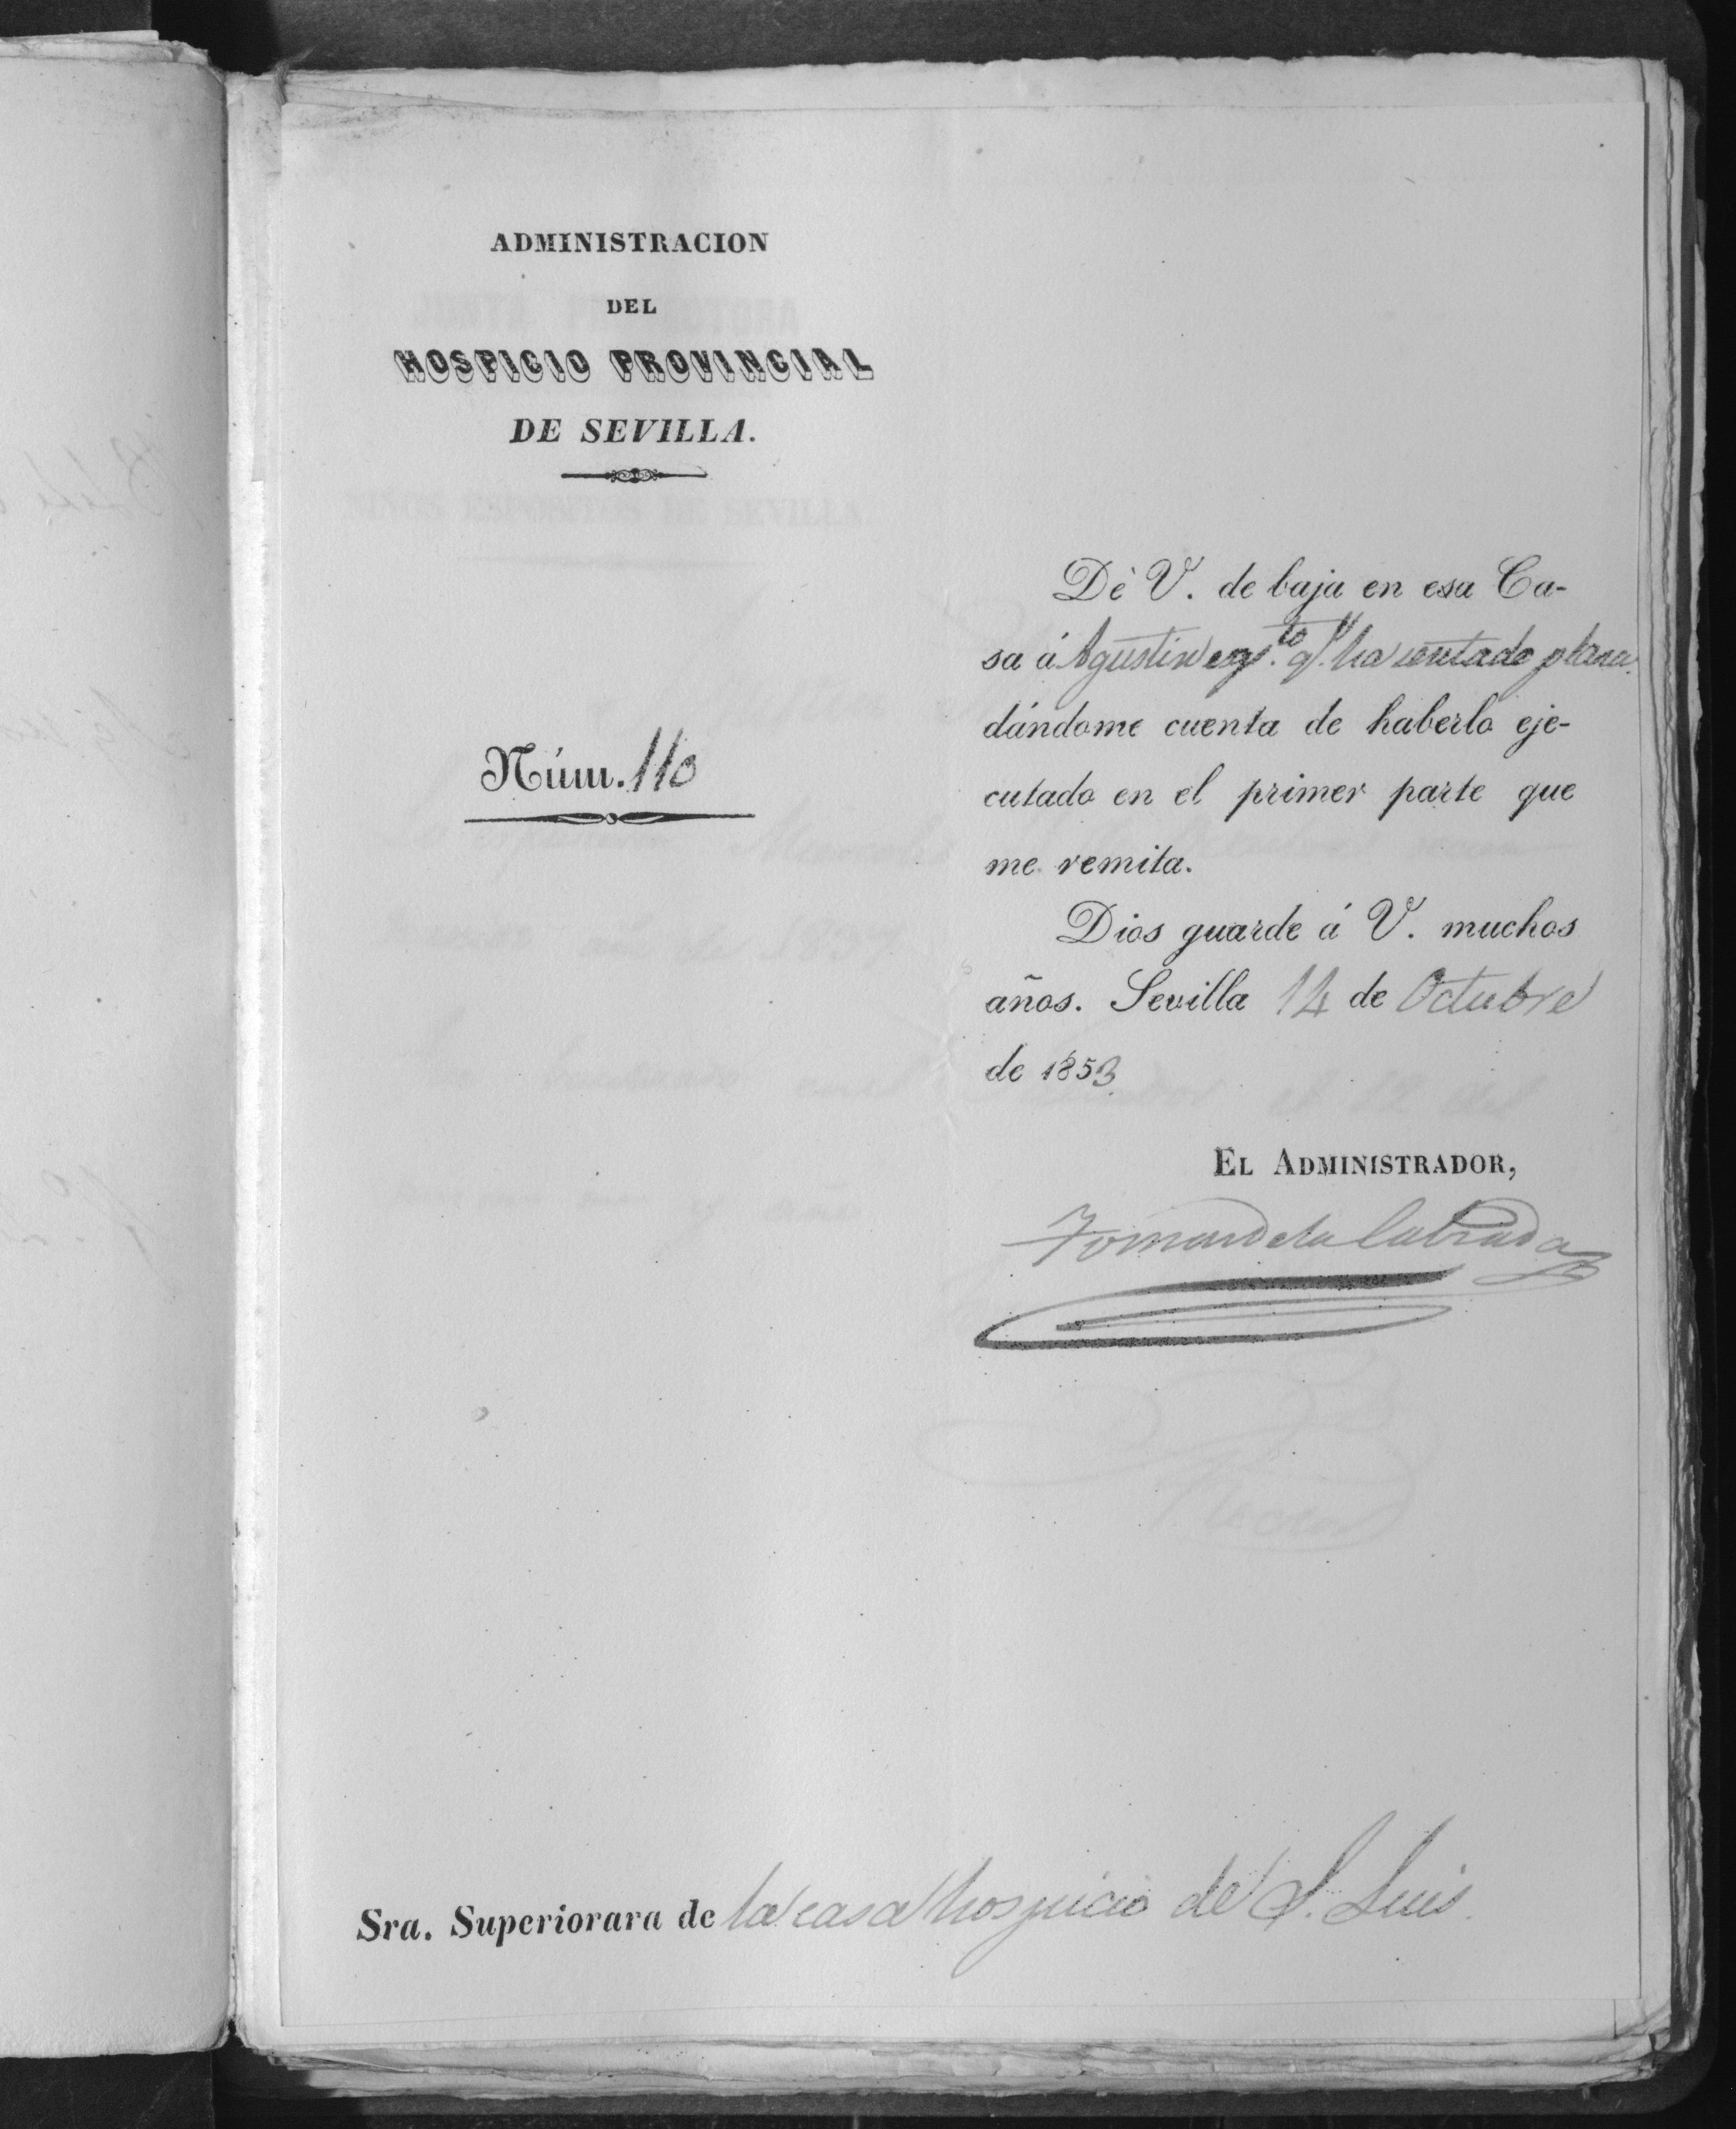 ADMINISTRACION
DEL
HOSPICIO PROVINCIAL
DE SEVILLA.
Núm. 110
Dè V. de baja en esa Ca-
sa á Agustin esp.to q.e ha sentado plaza
dándome cuenta de haberlo eje-
cutado en el primer parte que
me remita.
Dios guarde á V. muchos
años. Sevilla 14 de Octubre
de 1853
EL ADMINISTRADOR,
de la Cabrada
Sra. Superiorara de la casa hospicio de S. Luis.